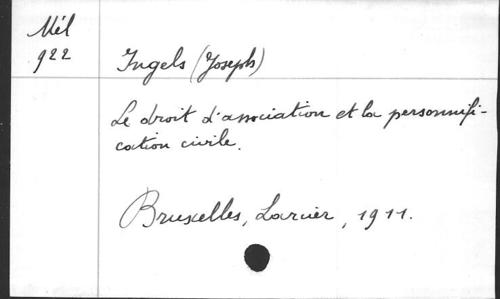 Mél
922
Ingels (Joseph)
Le droit d'association et la personnifi-
cation civile.
Bruxelles, Larcier, 1911.